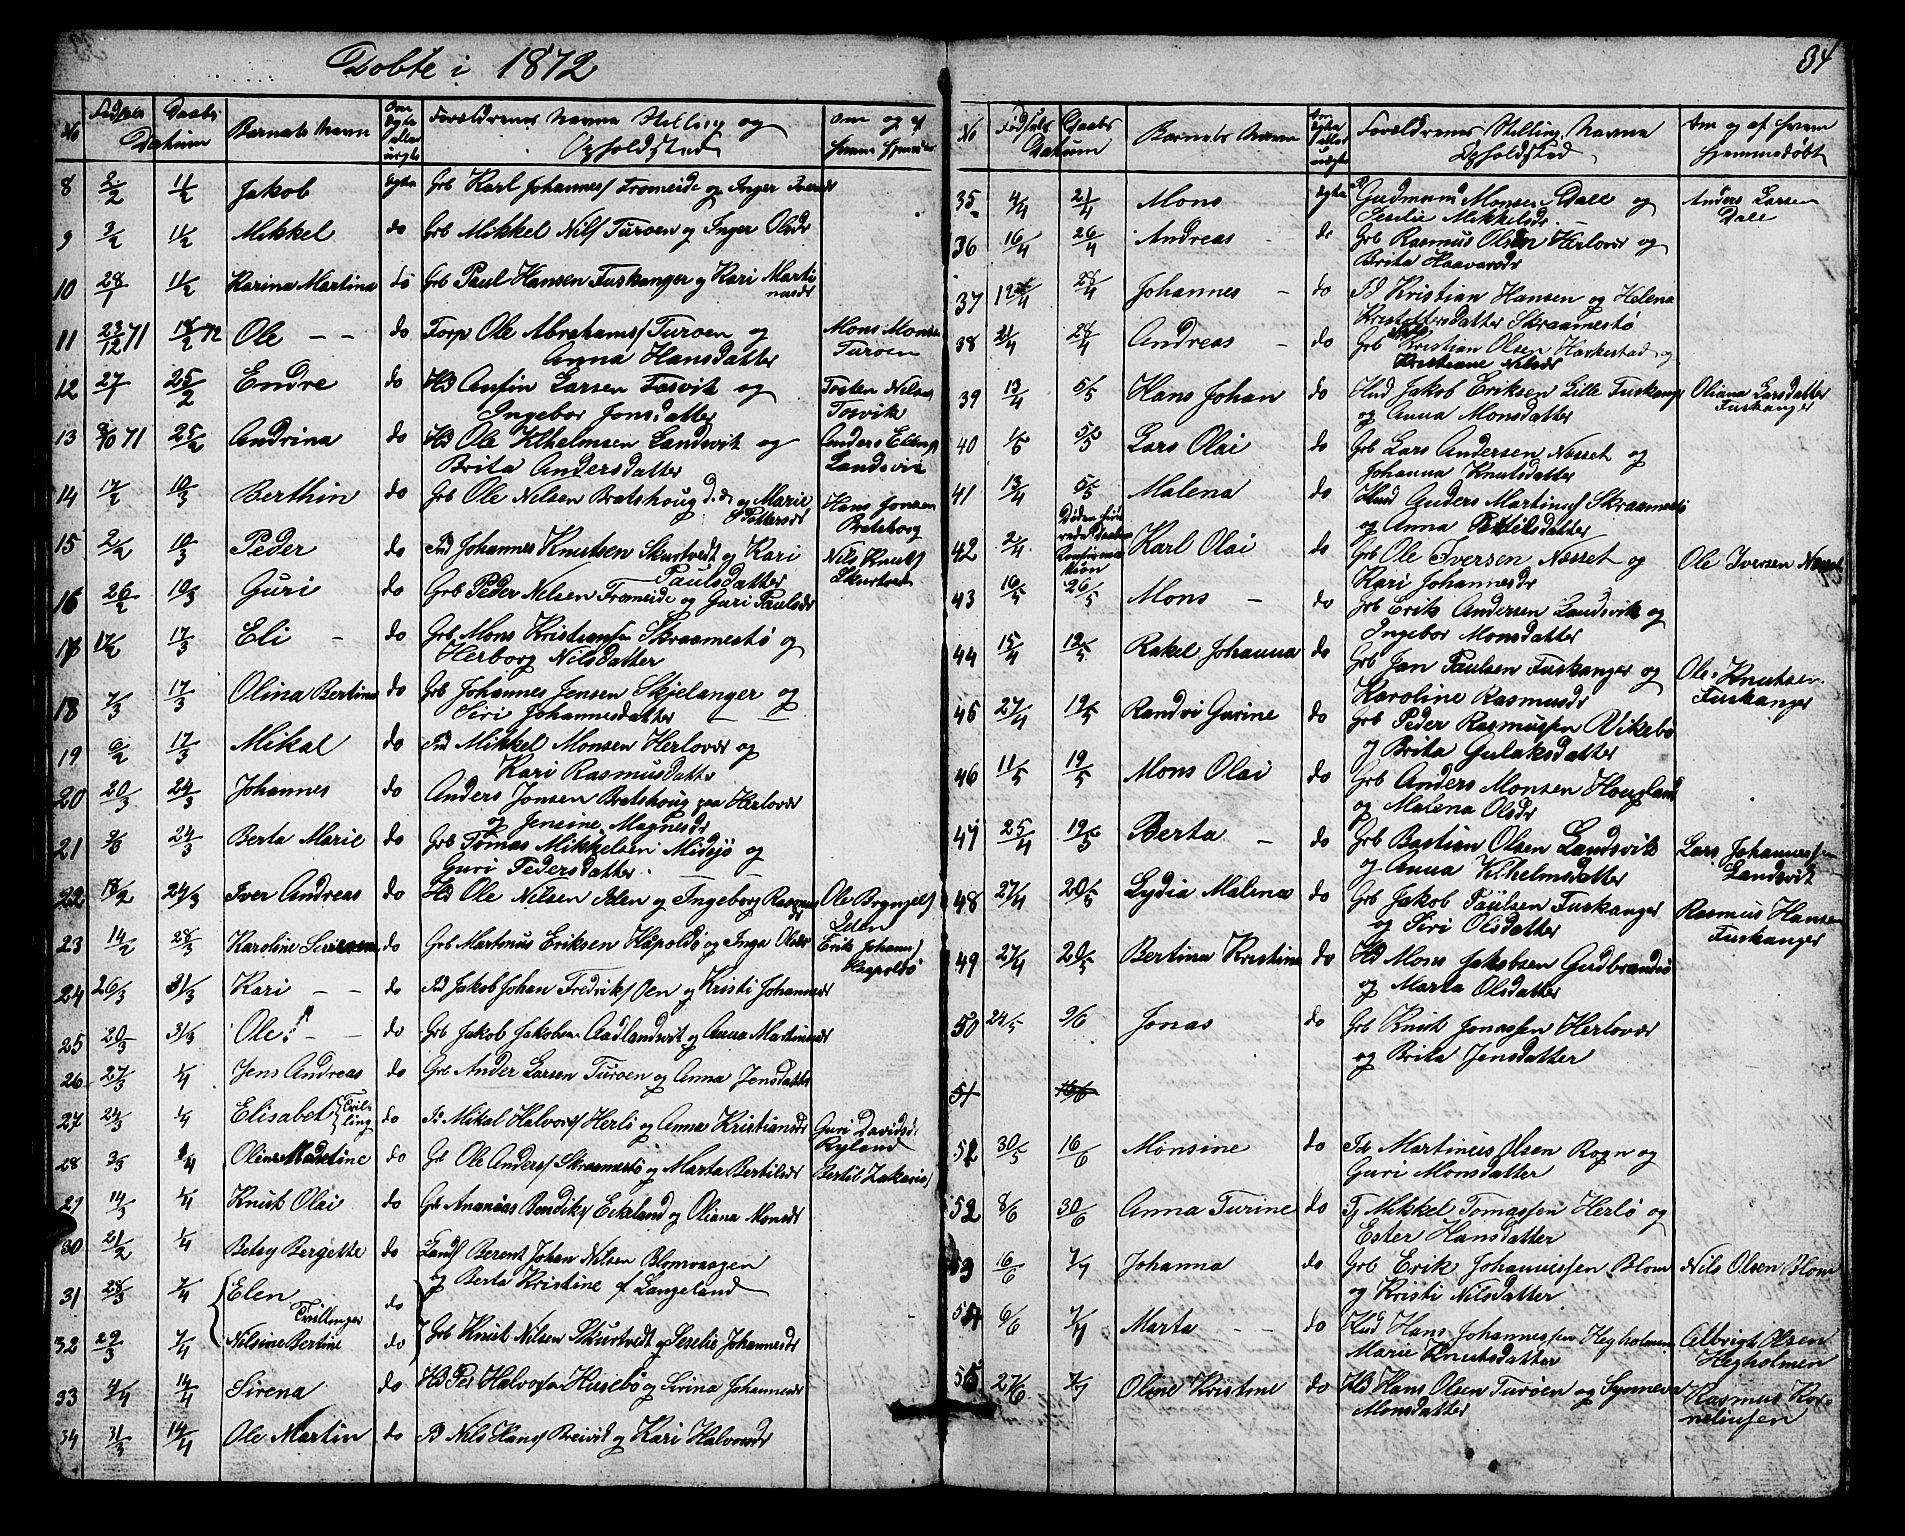 Døbte i 1872
No Fødsels Daabs Datum Barnets Navn Om Ægte eller uægte Forældrenes Navne Stilling og Opholdsted Om og af hvem hjemmedøbt
8 2/2 11/2 Jakob ægte Grb Karl Johannes/ Fromeide og Inger Iversdr
9 3/2 11/2 Mikkel do Grb Mikkel Nils/ Turøen og Inger Olsdr
10 28/1 11/2 Karina Martina do Grb Paul Hansen Fuskanger og Kari Marti
nusdr
11 23/12 71 18/2 72 Ole – – do Torp Ole Abrahams/ Turøen og Mons Monsen
Anna Hansdatter Turøen
12 27/1 25/2 Endre do Hd Anfin Larsen Tosvik og Tosten Nils/
Ingebor Jonsdatter Tosvik
13 71 25/2 Andrina do Hd Ole Vilhelmsen Landsvik og Anders Elling/
Brita Andersdatter Landsvik
14 17/2 10/3 Berthin do Grb Ole Nilsen Bratshoug og Marie Hans Jonsen
Pettersdr Bratshoug
15 2/2 10/3 Peder do Ind Johannes Knutsen Skurtvedt og Kari Nils Knuts/
Paulsdatter Skurtvedt
16 26/2 10/3 Guri do Grb Peder Nilsen Fromeide og Guri Paulsdr
17 17/2 17/3 Eli – do Grb Mons Kristiansen Skraamestø og
Herborg Nilsdatter
18 7/3 17/3 Olina Bertina do Grb Johannes Jensen Skjelanger og
Siri Johannesdatter
19 6/2 17/3 Mikal do Ind Mikkel Monsen Herlovær og
Kari Rasmusdatter
20 20/3 24/3 Johannes do Anders Jonsen Bratshoug paa Herlovær
og Jensine Magnesdr
21 24/3 Berta Marie do Grb Tomas Mikkelsen Midsjø og
Guri Pedersdatter
22 18/2 24/3 Iver Andreas do Hd Ole Nilsen Iden og Ingeborg Rasmusdr Ole Brynjels/
Iden
23 14/2 28/3 Karoline do Grb Martinus Eriksen Haapoldø og Inga Olsdr Erik Johann/
Haapoldø
24 26/3 31/3 Kari – – do Ind Jakob Johan Fredrik/ Øen og Kristi Johannesdr
25 20/3 31/3 Ole – do Grb Jakob Jakobsen Aadlandsvik og Anna Martinusdr
26 27/3 1/4 Jens Andreas do Grb Ander Larsen Turøen og Anna Jensdatter
27 24/3 1/4 Elisabet Tvil-
ling do Mikal Halvors/ Herlø og Anna Kristiansdr Guri Davidsd.
Ryland
28 3/3 1/4 Oline Madeline do Gr Ole Anders/ Skraamestø og Marta Bertilsdr Bertil Zakarias/
29 14/3 1/4 Knut Olai do Grb Ananias Bendiks/ Eikeland og Oliana Monsdr
30 21/2 1/4 Betsy Bergette do Land/ Berent Johan Nilsen Blomvaagen
og Berta Kristine f. Langeland
31 28/3 7/4 Elen
Tvillinger do
32 29/3 7/4 Nilsine Bertine do Grb Knut Nilsen Skurtvedt og Seselie Johannesdr
33 4/4 14/4 Sirena do Hd Peder Halvorsen Husebø og Sirina Johannesdr
34 31/3 14/4 Ole Martin do Nils Hans/ Breivik og Kari Halvorsdr
34
No Fødsels Daabs Datum Barnets Navn Om Ægte eller uægte Forældrenes Stilling Navne Opholdsted Om og af hvem hjemmedøbt
35 4/4 21/4 Mons ægte Gudmund Monsen Dale og Anders Larsen
Seselie Mikkelsdr Dale
36 16/4 26/4 Andreas – do Grb Rasmus Olsen Herlovær og
Brita Haavarsdr
37 12/4 28/4 Johannes – do Id Kristian Hansen og Helena
Kristoffersdatter Skraamestø
38 21/4 28/4 Andreas – do Grb Kristian Olsen Harkestad og
Kristiane Nilsdr
39 13/4 5/5 Hans Johan do Hud Jakob Eriksen Lille Fuskanger Oliana Larsdatter
og Anna Monsdatter Fuskanger
40 5/5 Lars Olai do Grb Lars Andersen Nesset og
Johanna Knutsdatter
41 13/4 5/5 Malena do Hud Anders Martinus/ Skraamestø
og Anna Pettersdatter
42 2/4 Karl Olai do Grb Ole Iversen Nesset og Ole Iversen Nesset
Kari Johannesdr
43 16/5 26/5 Mons – do Grb Erik Andersen Landsvik og
Ingebor Monsdatter
44 15/4 19/5 Rakel Johanna do Grb Jan Paulsen Fuskanger og Ole Knutsen
Karoline Rasmusdr Fuskanger
45 27/4 19/5 Randvi Gurine do Grb Peder Rasmussen Vikebø
og Brita Gulaksdatter
46 11/5 19/5 Mons Olai do Grb Anders Monsen Hougland
og Malena Olsdr
47 25/4 19/5 Berta – do Grb Bastian Olsen Landsvik Lars Johannessen
og Anna Vilhelmsdatter Landsvik
48 27/4 20/5 Lydia Malena do Grb Jakob Paulsen Fuskanger Rasmus Hansen
og Siri Olsdatter Fuskanger
49 27/4 20/5 Bertina Kristine do Hd Mons Jakobsen Gudbrandsø
og Marta Olsdatter
50 24/5 9/6 Jonas do Grb Knut Jonassen Herlovær
og Brita Jensdatter
51 16/6
52 30/5 16/6 Monsine do Martinus Olsen Rogn og
Guri Monsdatter
52 8/6 30/6 Anna Turine do Mikkel Tomassen Herlø og
Ester Hansdatter
53 6/6 7/7 Johanna do Grb Erik Johannessen Blom Nils Olsen Blom
og Kristi Nilsdatter
54 6/6 7/7 Marta – – do Hud Hans Johannessen Hegholmen Albrigt Olsen
Marie Knutsdatter Hegholmen
55 27/6 7/7 Oline Kristine do Hd Hans Olsen Turøen og Synneva Rasmus Kor-
Monsdatter neliussen